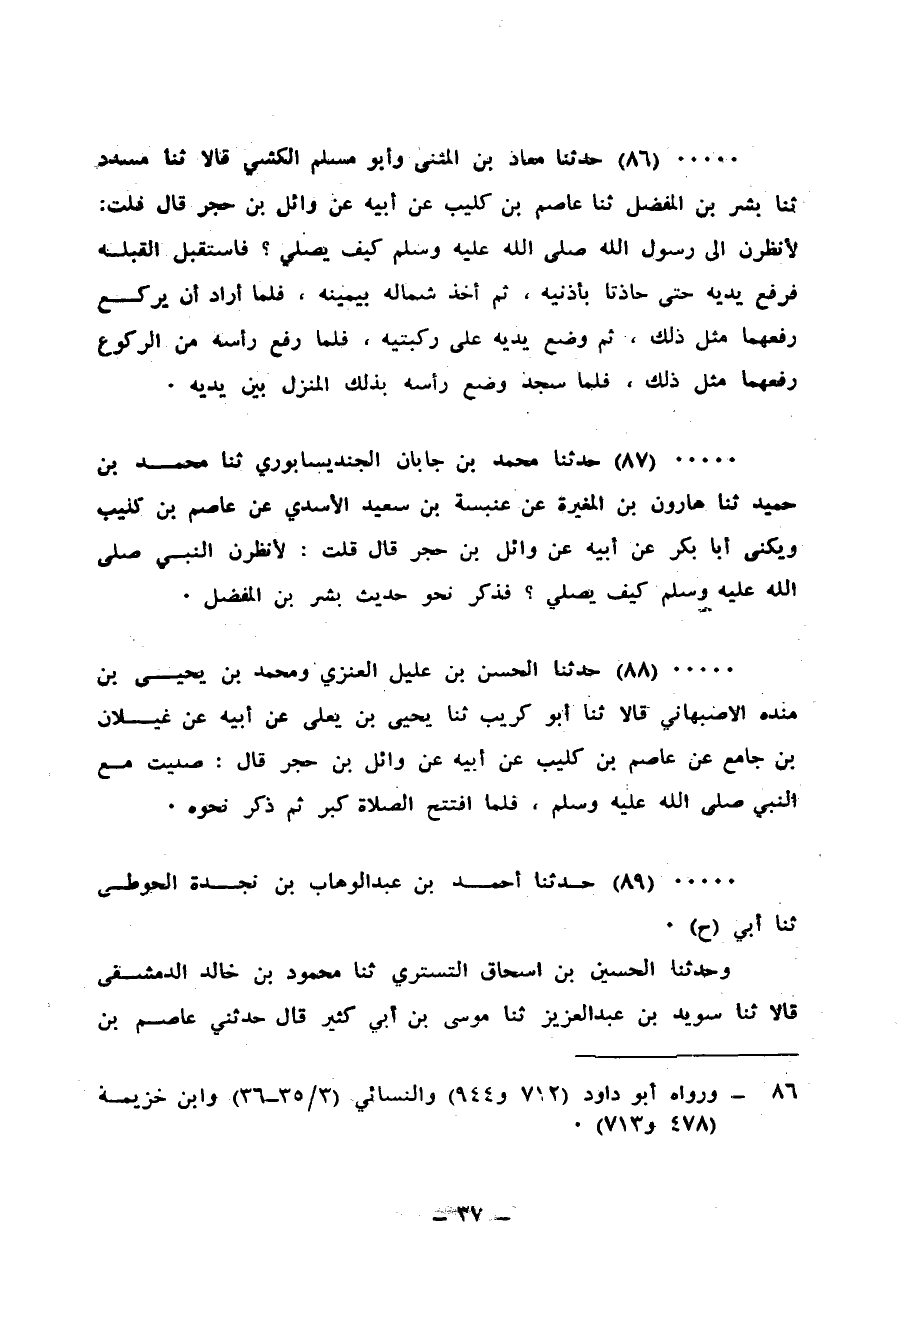 ٠٠٠٠٠ (٨٦) حدثنا معاذ بن المثنى وأبو مسلم الكشي قالا ثنا مسدد
ثنا بشر بن المفضل ثنا عاصم بن كليب عن أبيه عن وائل بن حجر قال قلت:
لأنظرن الى رسول الله صلى الله عليه وسلم كيف يصلي ؟ فاستقبل القبلـه
فرفع يديه حتى حاذتا بأذنيه ، ثم أخذ شماله بيمينه ، فلما أراد أن يركـــع
رفعهما مثل ذلك ، ثم وضع يديه على ركبتيه ، فلما رفع رأسه من الركوع
رفعهما مثل ذلك ، فلما سجد وضع رأسه بذلك المنزل بين يديه ٠
٠٠٠٠٠ (٨٧) حدثنا محمد بن جابان الجنديسابوري ثنا محمـــد بن
حميد ثنا هارون بن المغيرة عن عنبسة بن سعيد الأسدي عن عاصم بن كليب
ويكنى أبا بكر عن أبيه عن وائل بن حجر قال قلت : لأنظرن النبـي صلى
الله عليه وسلم كيف يصلي ؟ فذكر نحو حديث بشر بن المفضل ٠
٠٠٠٠٠ (٨٨) حدثنا الحسن بن عليل العنزي ومحمد بن يحيـــى بن
منده الاصبهاني قالا ثنا أبو كريب ثنا يحيى بن يعلى عن أبيه عن غيـــلان
بن جامع عن عاصم بن كليب عن أبيه عن وائل بن حجر قال : صليت مـع
النبي صلى الله عليه وسلم ، فلما افتتح الصلاة كبر ثم ذكر نحوه ٠
٠٠٠٠٠ (٨٩) حـدثنا أحمـــد بن عبدالوهاب بن نجـــدة الحوطـي
ثنا أبي (ح) ٠
وحدثنا الحسين بن اسحاق التستري ثنا محمود بن خالد الدمشـــقي
قالا ثنا سويد بن عبدالعزيز ثنا موسى بن أبي كثير قال حدثني عاصـم بن
٨٦ ـ ورواه أبو داود (٧١٢ و٩٤٤) والنسائي (٣/٣٥ــ٣٦) وابن خزيمـــة
(٤٧٨ و٧١٣) ٠
ـ ٣٧ ـ